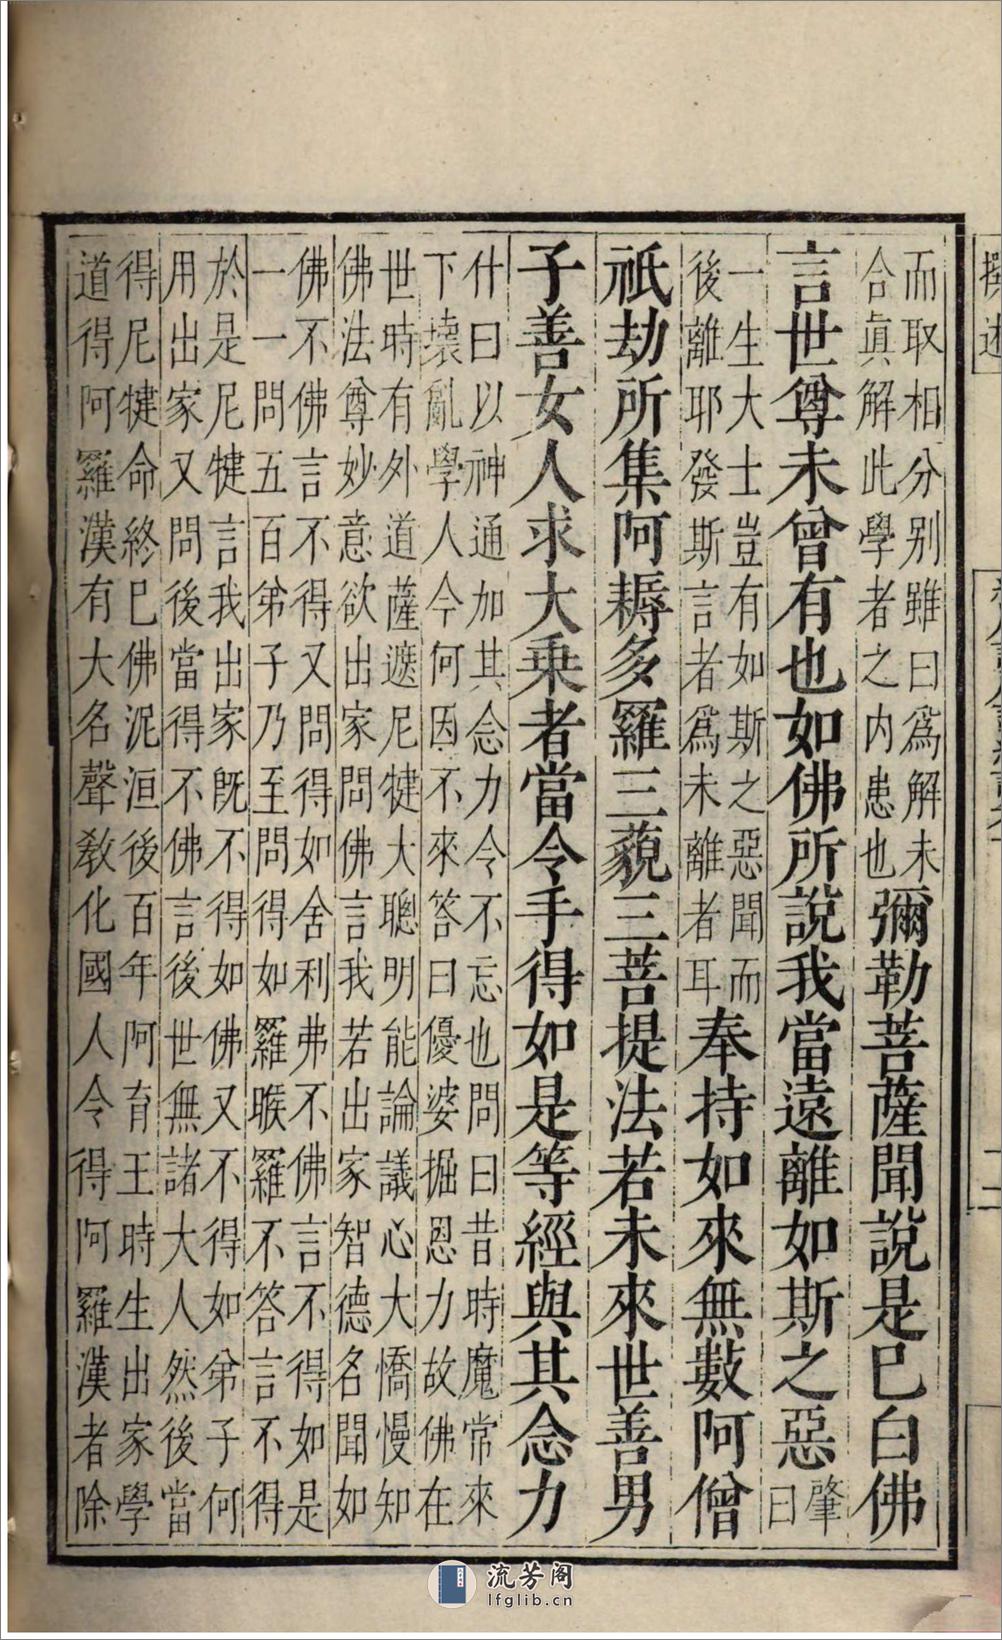 撰述
二
而取相分别雖曰爲解未
合眞解此學者之内患也
彌勒菩薩聞說是已白佛
言世尊未曾有也如佛所說我當遠離如斯之惡
肇
曰
一生大士豈有如斯之惡聞而
後離耶發斯言者爲未離者耳
奉持如來無數阿僧
祇劫所集阿耨多羅三藐三菩提法若未來世善男
子善女人求大乘者當令手得如是等經與其念力
什曰以神通加其念力令不忘也問曰昔時魔常來
下壊亂學人今何因不來答曰優婆掘恩力故佛在
世時有外道薩遮尼犍大聰明能論議心大憍慢知
佛法尊妙意欲出家問佛言我若出家智德名聞如
佛不佛言不得又問得如舍利弗不佛言不得如是
一一問五百弟子乃至問得如羅睺羅不答言不得
於是尼犍言我出家既不得如佛又不得如弟子何
用出家又問後當得不佛言後世無諸大人然後當
得尼犍命終已佛泥洹後百年阿育王時生出家學
道得阿羅漢有大名聲敎化國人令得阿羅漢者除
流芳阁
lfglib.cn